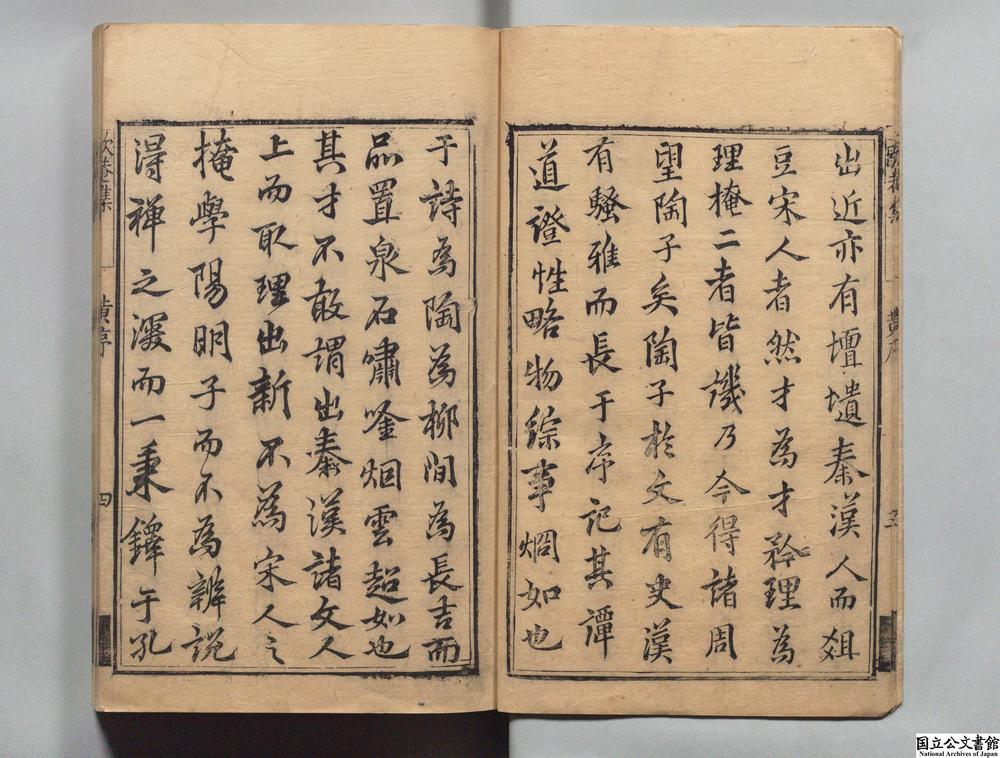 出近亦有壇墠秦漢人而俎
豆宋人者然才為才矜理為
理掩二者皆譏乃今得諸周
望陶子矣陶子於文有史漢
有騷雅而長于序記其譚
道證性略物綜事烱如也
于詩為陶為柳間為長吉而
品置泉石嘯唫烟雲超如也
其才不敢謂出秦漢諸文人
上而取理出新不為宋人之
掩學陽明子而不為辨說
得禅之深而一秉鐸于孔
歇菴集
一
黃序
四
国立公文書館
National Archives of Japan